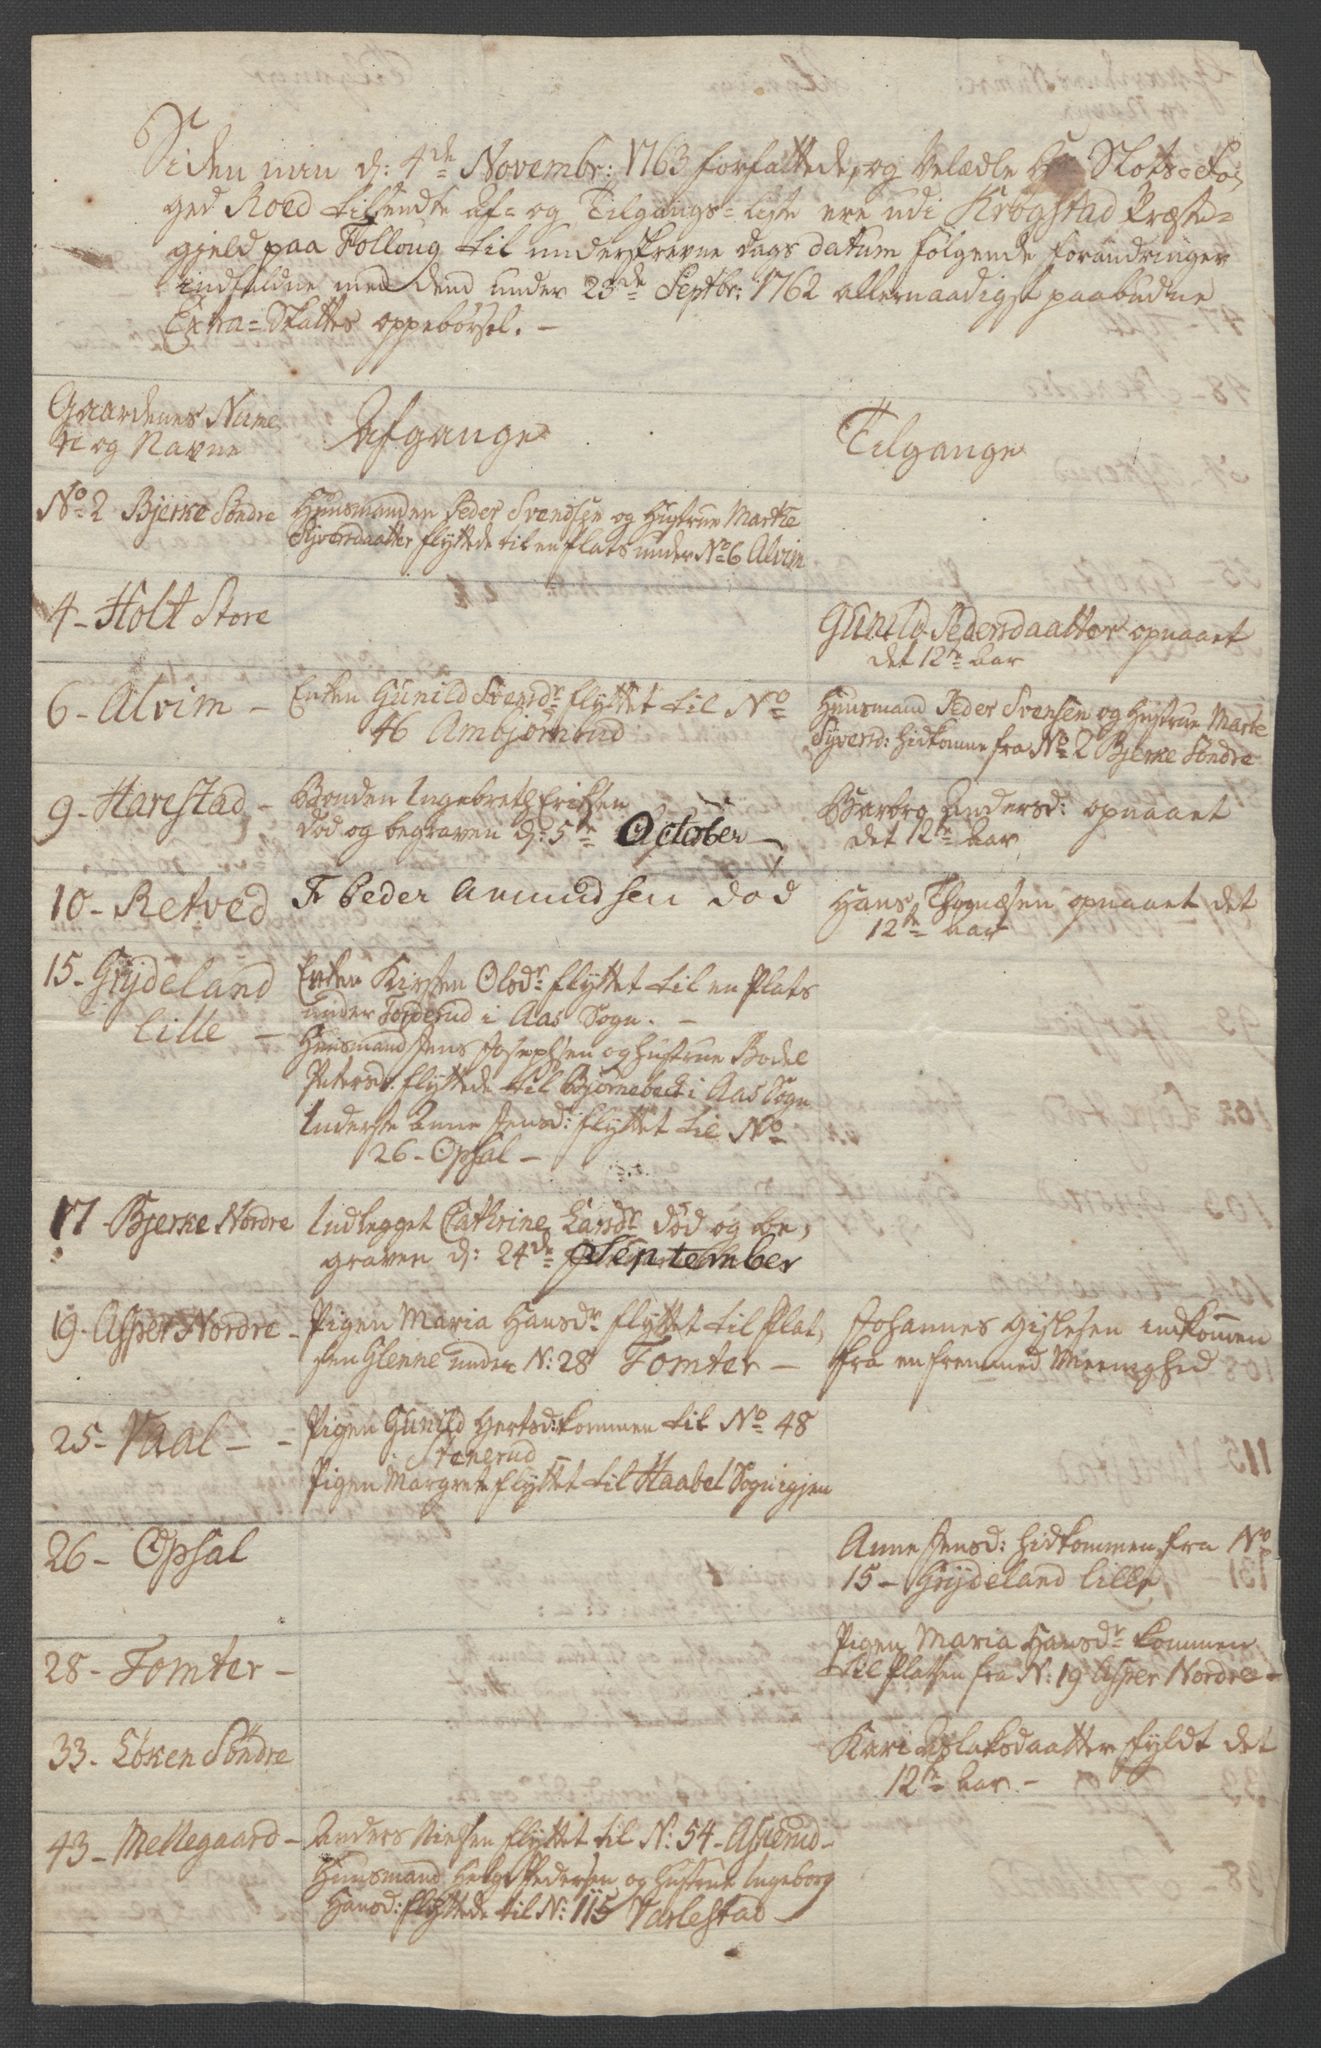 Siden min d: 4de Novembr: 1763 forfattede, og Velædle Hr Slots-Fo-
ged Roed tilsendte af- og Tilgangs-Liste ere udi Krogstad Præste-
gjeld paa Folloug til underskrevne dags datum følgende forandringer
indfaldne med dend under 23de Septbr: 1762 allernaadigst paabudne
Extra-Skattes oppebørsel. -
Gaardenes Nume-
re og Navne
Afgange
Tilgange
No 2 Bjerke Søndre
Huusmanden Peder Svendsen og Hustrue Marthe
Syversdaatter flyttede til en Plats under No 6 Alvim
4 - Holt Store
Gunild Pedersdaatter opnaaet
det 12te Aar
6 - Alvim -
Enken Gunild Svensdr flyttet til No
46 Ambjørnrud
Huusmand Peder Svensen og Hustrue Marte
Syversd: hidkomne fra No 2 Bjerke Søndre
9 - Harestad -
Bonden Ingebreth Erichsen
død og begraven d: 5te October -
Barbro Andersd: opnaaet
det 12te Aar
10 - Retved
Fr Peder Amundsen død
Hans Thognæsen opnaaet det
12te Aar
15 - Grydeland
Lille -
Enken Kirsten Olsdr flyttet til en Plats
under Torderud i Aas Sogn. -
Huusmand Jens Josephsen og Hustrue Bodel
Petersd: flyttede til Bjørnebeck i Aas Sogn
Inderste Anne Jensd: flyttet til No
26 - Opsal -
17 - Bjerke Nordre
Indlegget Cathrine Larsdr død og be-
graven d: 24de September
19 - Asper Nordre -
Pigen Maria Hansdr flyttet til Plat-
sen Glenne under N: 28 Tomter -
Johannes Gislesen indkommen
fra en fremmed Meenighed
25 - Vaal - -
Pigen Gunild Hertsd: kommen til No 48
Stenerud -
Pigen Margrete flyttet til Haabel Sogn igjen
26 - Opsal
Anne Jensd: hidkommen fra No
15 - Grydeland Lille
28 - Tomter -
Pigen Maria Hansdr kommen
til Platsen fra N: 19 Asper Nordre -
33 - Løken Søndre
Kari Aslaksdaatter fyldt det
12te Aar -
43 - Mellegaard -
Anders Nielsen flyttet til N: 54 - Asperud -
Huusmand Helge Pedersen og Hustrue Ingeborg
Hansd: flyttede til N: 115 Varlestad -